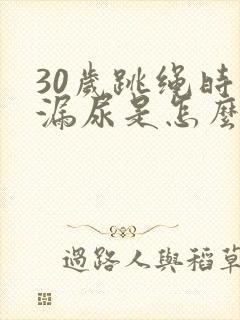 30歲跳绳时
漏尿是怎麼
過路人與稻草